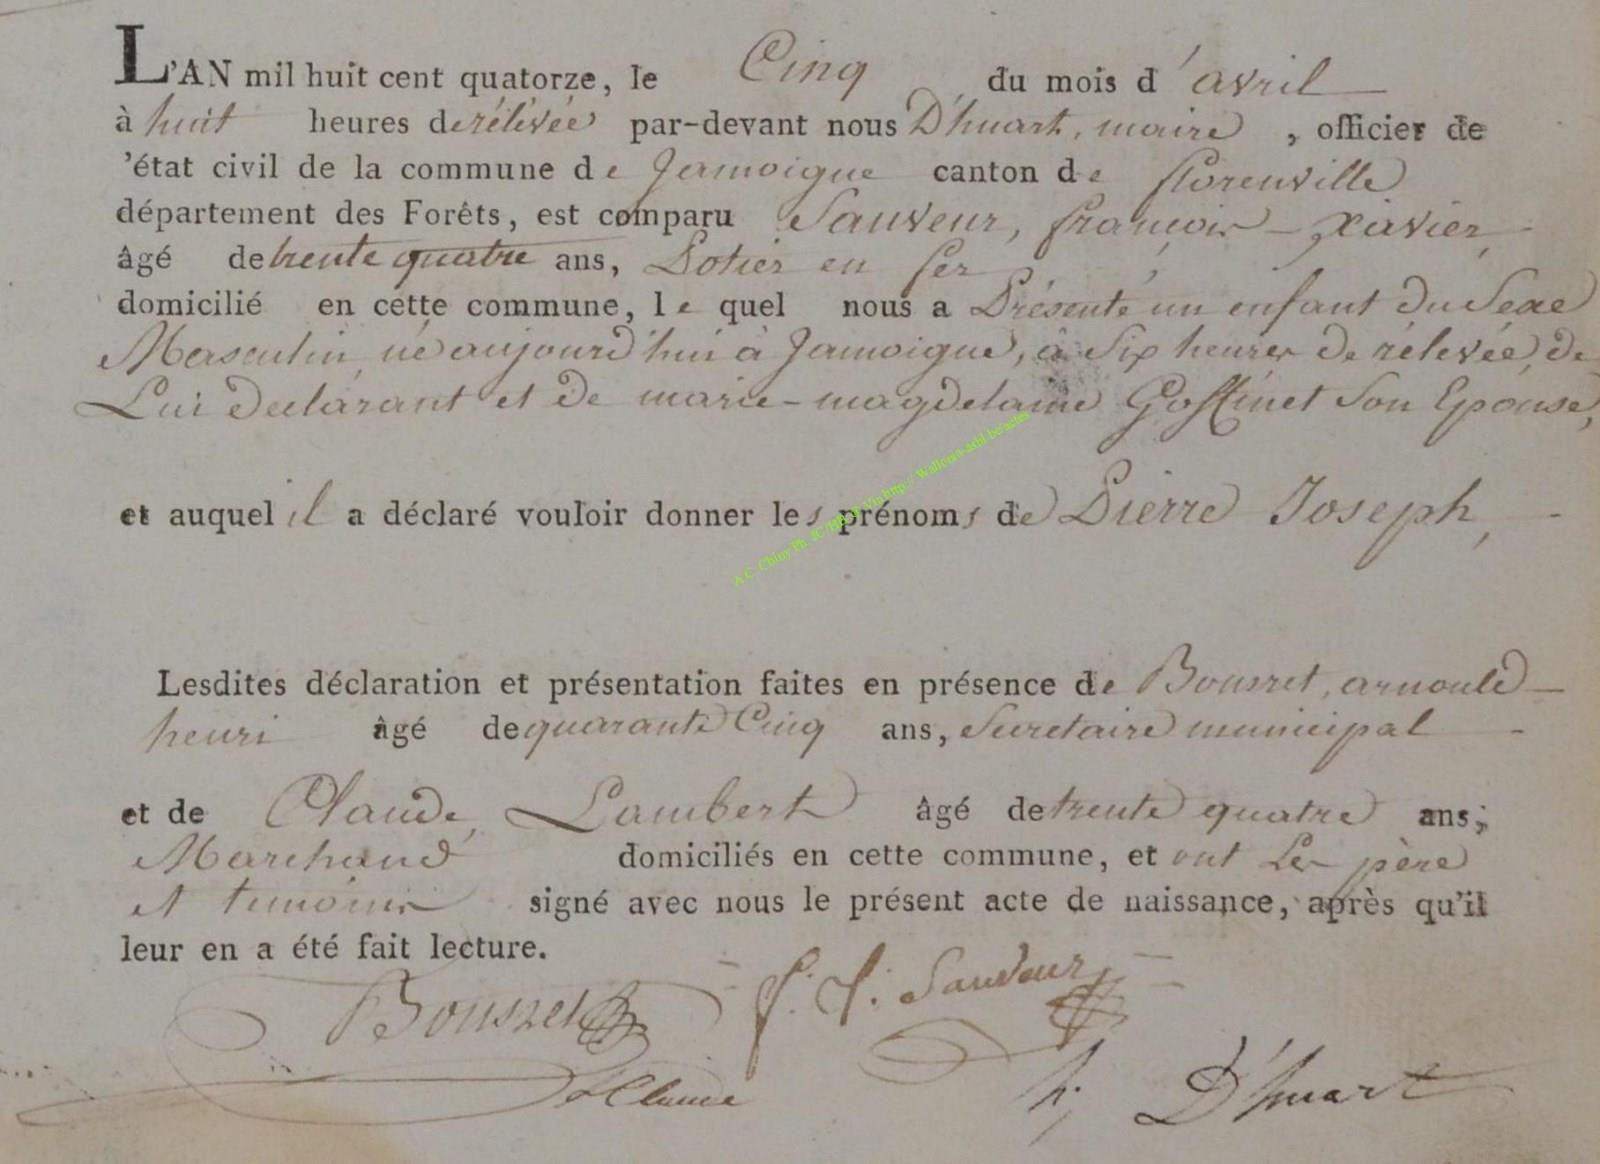 L'AN mil huit cent quatorze, le Cinq du mois d'avril
à huit heures de rélévée par-devant nous D'huart, maire, officier de
'état civil de la commune de Jamoigne canton de florenville
département des Forêts, est comparu Sauveur, françois-Xavier,
âgé de trente quatre ans, Potier en fer
domicilié en cette commune, le quel nous a Présenté un enfant du Sexe
Masculin, né aujourd'hui à Jamoigne, à Six heures de rélevée, de
Lui declarant et de marie-magdelaine Goffinet Son Epouse,
et auquel il a déclaré vouloir donner les prénoms de Pierre Joseph,
A.C. Chiny Ph. http:// Wallonia-asbl.be/actes
Lesdites déclaration et présentation faites en présence de Bousret, arnould
henri âgé de quarante Cinq ans, Secretaire municipal
et de Claude, Lambert âgé de trente quatre ans,
Marchand domiciliés en cette commune, et ont Les père
et temoins signé avec nous le présent acte de naissance, après qu'il
leur en a été fait lecture.
Bousret f. f. Sauveur
Claude h. D'huart